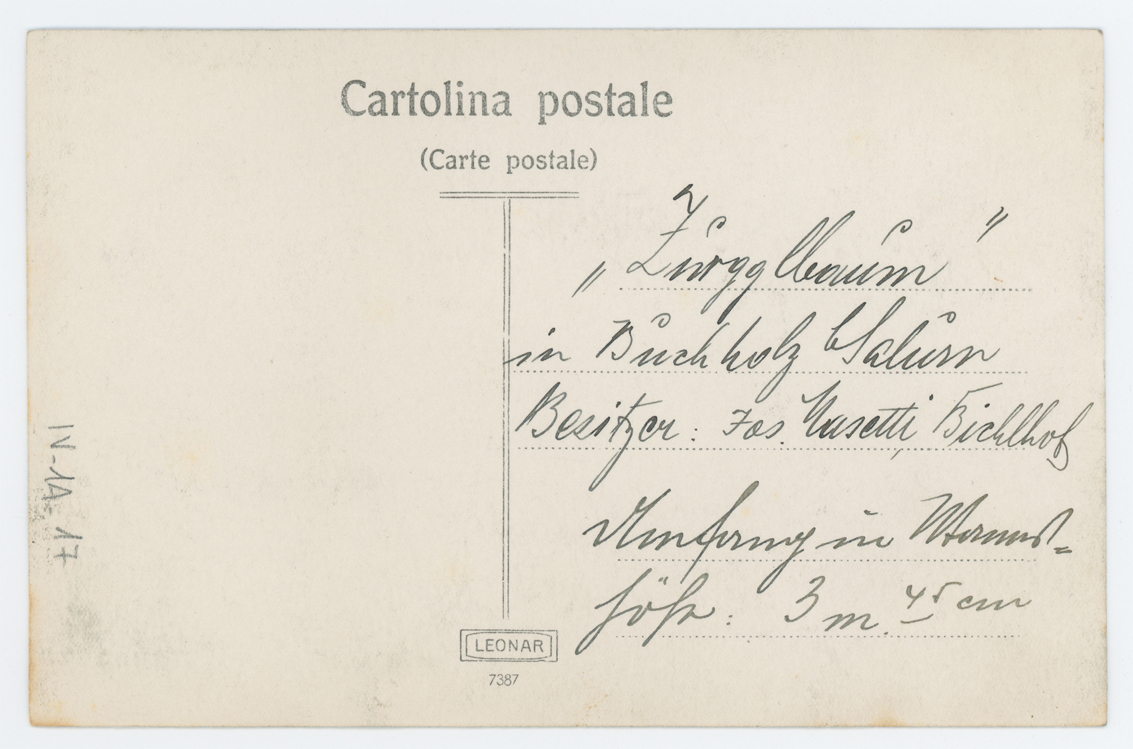 Cartolina postale
(Carte postale)
„Zürgglbaum"
in Buchholz b/Salurn
Besitzer: Jos. Nasetti, Bichlhof
Umfang in Mannes-
höhe: 3 m. 45 cm
LEONAR
7387